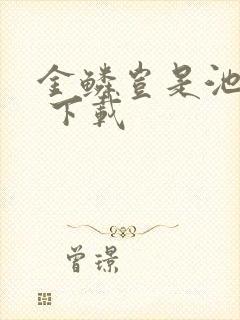 金鳞岂是池
下载
曾璟